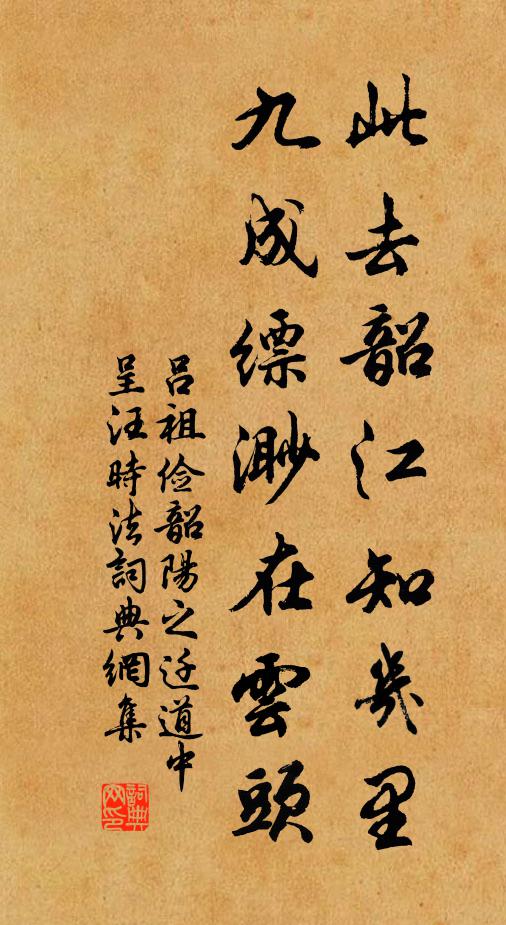 此去韶江知幾里
九成縹渺在雲頭
呂祖儉韶陽之迁道中
呈汪時法詞典網集
詞典網印